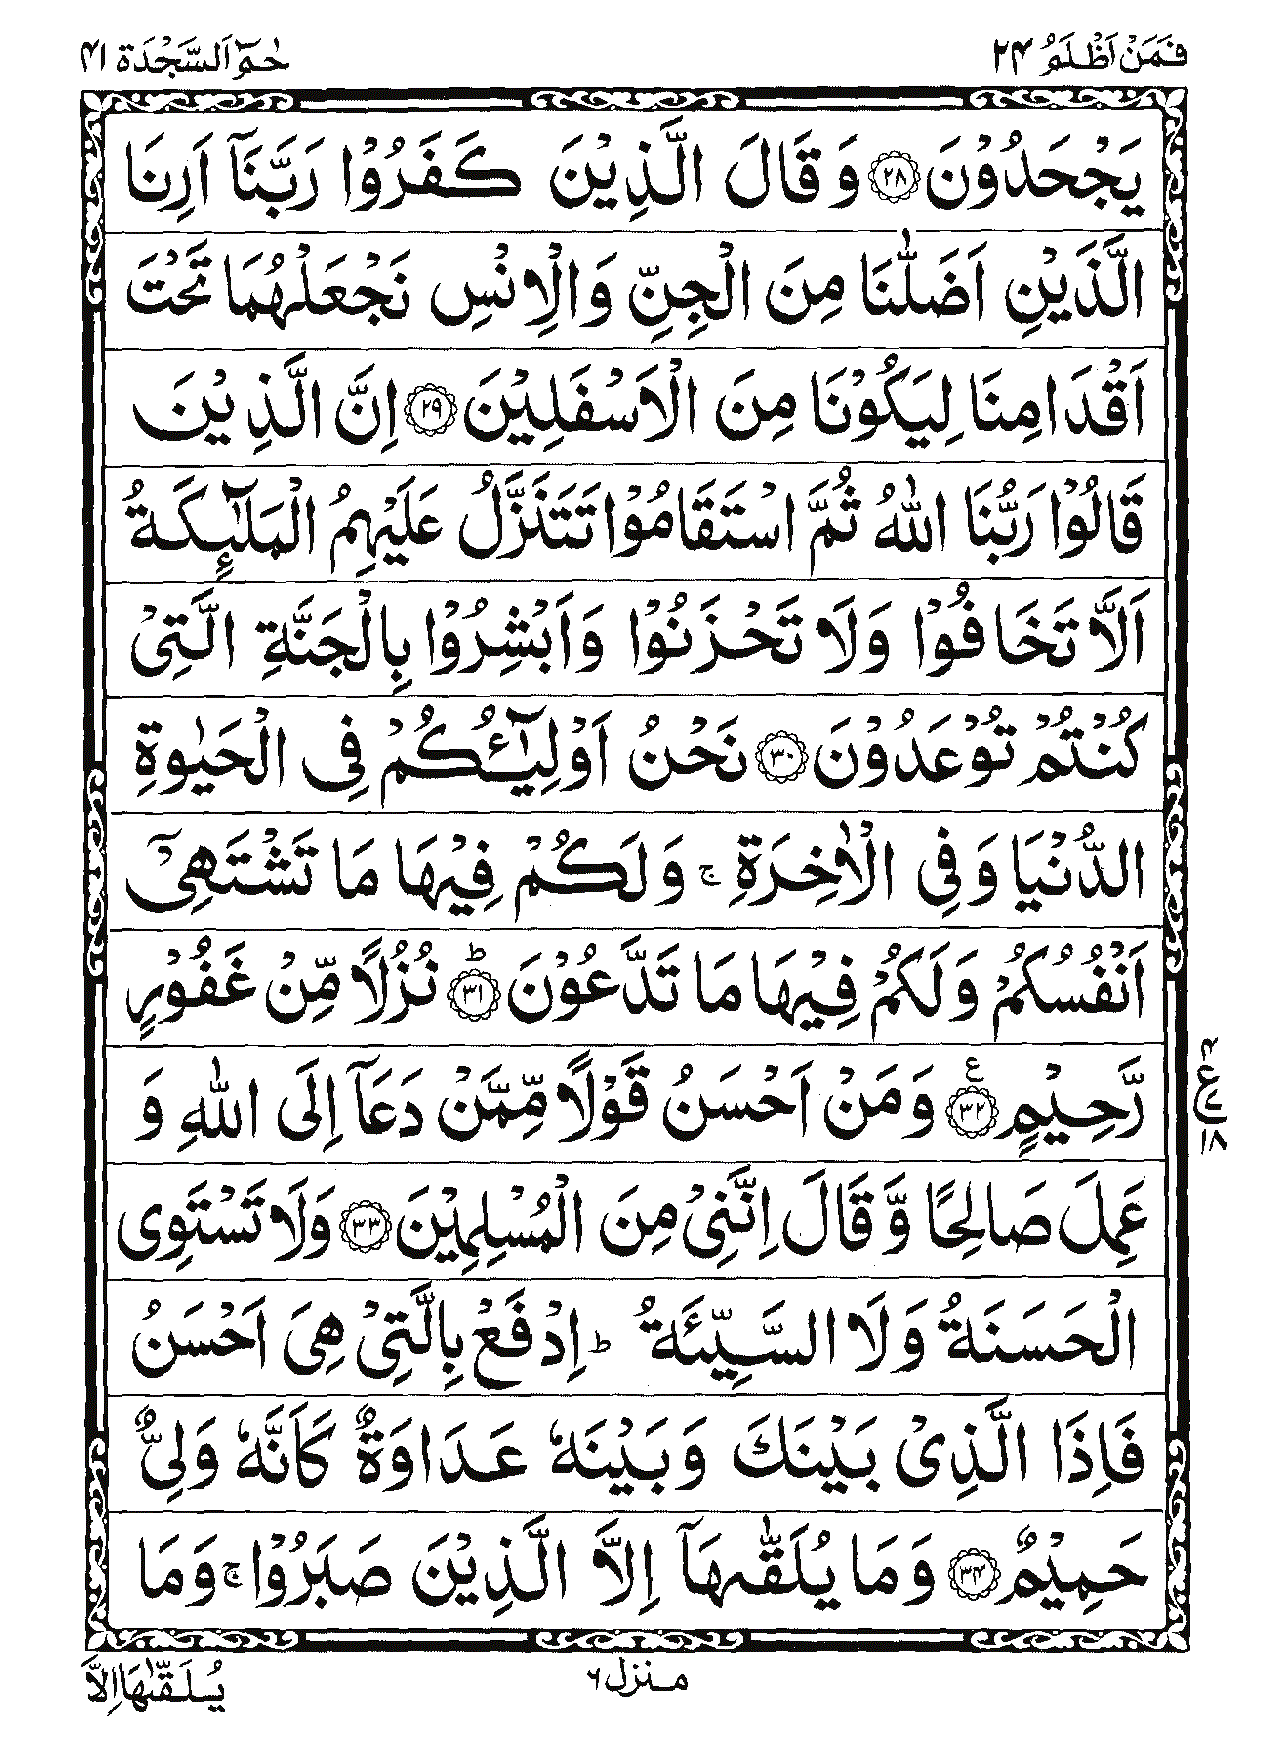 فَمَنْ اَظْلَمُ ۲۴ حٰمٓ اَلسَّجْدَة ۴۱
يَجْحَدُوْنَ ﴿۲۸﴾ وَ قَالَ الَّذِيْنَ كَفَرُوْا رَبَّنَآ اَرِنَا
الَّذَيْنِ اَضَلّٰنَا مِنَ الْجِنِّ وَالْاِنْسِ نَجْعَلْهُمَا تَحْتَ
اَقْدَامِنَا لِيَكُوْنَا مِنَ الْاَسْفَلِيْنَ ﴿۲۹﴾ اِنَّ الَّذِيْنَ
قَالُوْا رَبُّنَا اللّٰهُ ثُمَّ اسْتَقَامُوْا تَتَنَزَّلُ عَلَيْهِمُ الْمَلٰٓئِكَةُ
اَلَّا تَخَافُوْا وَلَا تَحْزَنُوْا وَاَبْشِرُوْا بِالْجَنَّةِ الَّتِيْ
كُنْتُمْ تُوْعَدُوْنَ ﴿۳۰﴾ نَحْنُ اَوْلِيٰٓـؤُكُمْ فِى الْحَيٰوةِ
الدُّنْيَا وَفِى الْاٰخِرَةِ ۚ وَلَكُمْ فِيْهَا مَا تَشْتَهِيْٓ
اَنْفُسُكُمْ وَلَكُمْ فِيْهَا مَا تَدَّعُوْنَ ؕ﴿۳۱﴾ نُزُلًا مِّنْ غَفُوْرٍ
رَّحِيْمٍ ﴿۳۲﴾ ع وَمَنْ اَحْسَنُ قَوْلًا مِّمَّنْ دَعَآ اِلَى اللّٰهِ وَ
عَمِلَ صَالِحًا وَّ قَالَ اِنَّنِيْ مِنَ الْمُسْلِمِيْنَ ﴿۳۳﴾ وَلَا تَسْتَوِى
الْحَسَنَةُ وَلَا السَّيِّئَةُ ؕ اِدْفَعْ بِالَّتِيْ هِىَ اَحْسَنُ
فَاِذَا الَّذِيْ بَيْنَكَ وَبَيْنَهٗ عَدَاوَةٌ كَاَنَّهٗ وَلِيٌّ
حَمِيْمٌ ﴿۳۴﴾ وَمَا يُلَقّٰىهَآ اِلَّا الَّذِيْنَ صَبَرُوْا ۚ وَمَا
منزل ۶
يُلَقّٰىهَا اِلَّا
ع ۱۸